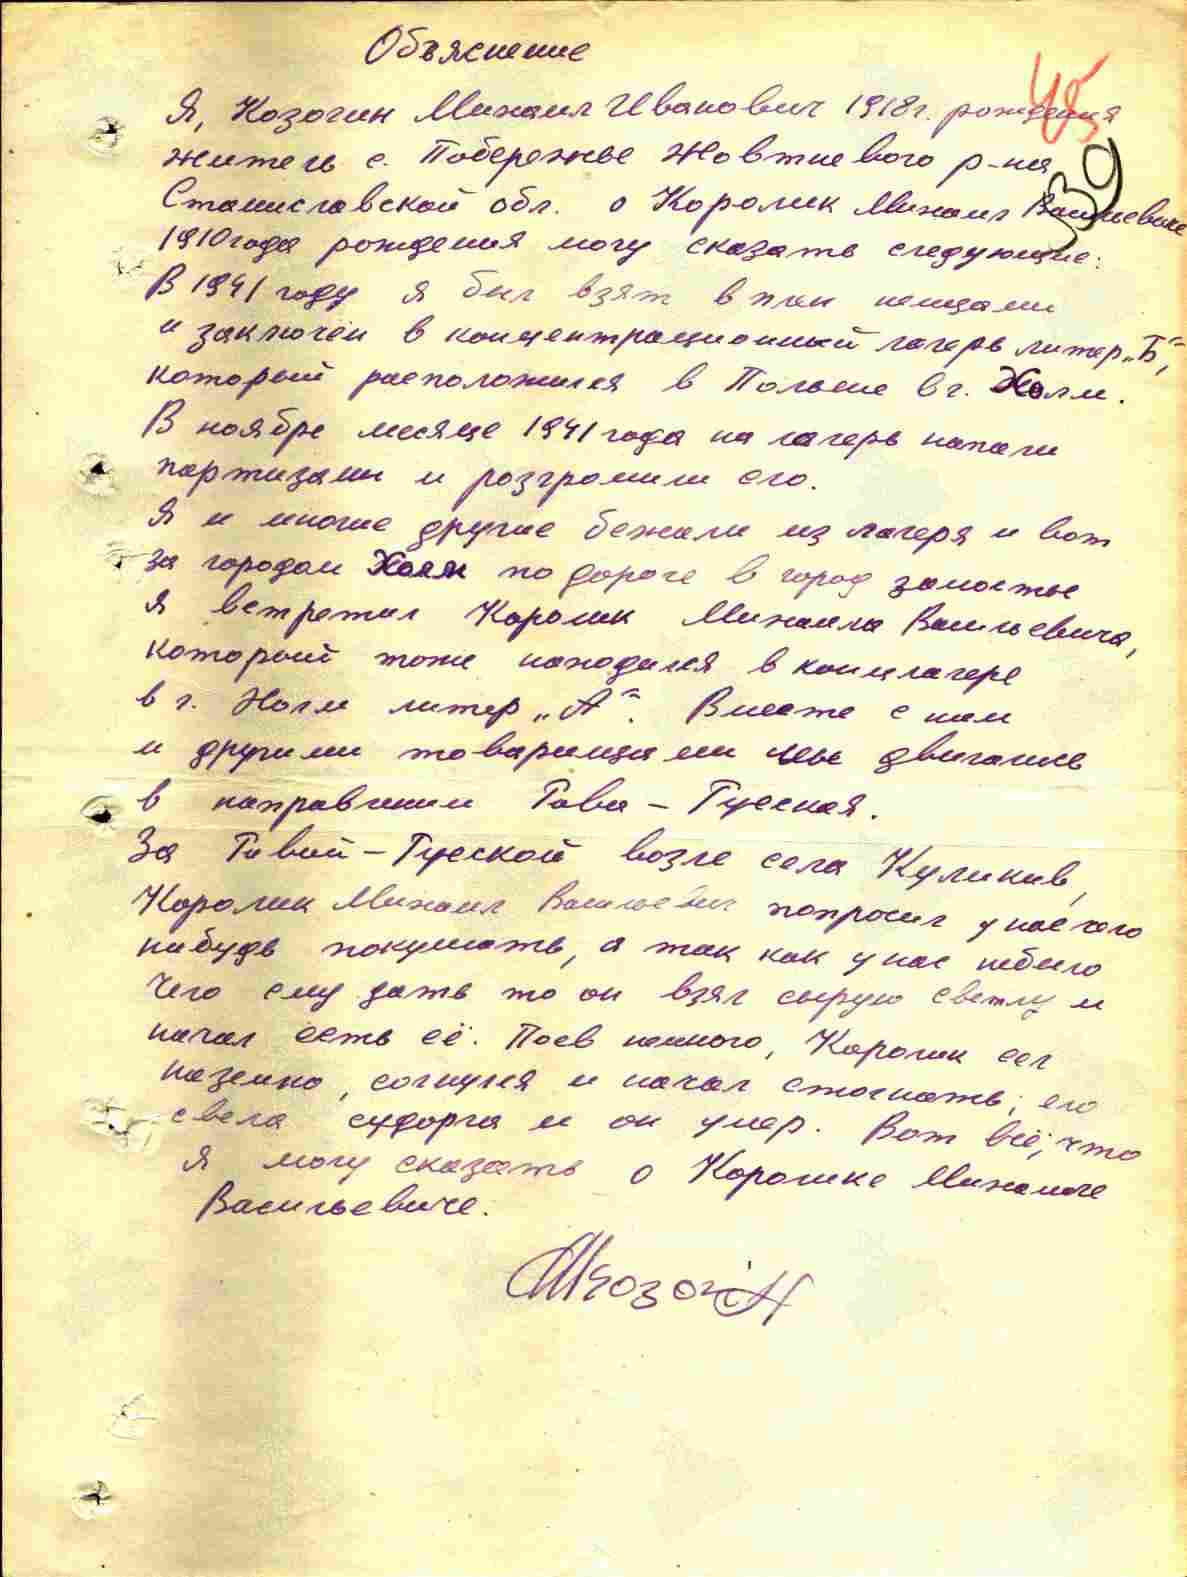 Объяснение
45
39
Я, Козогин Михаил Иванович 1918г. рождения
житель с. Побережье Жовтневого р-на
Станиславской обл. о Королик Михаил Васильевиче
1910года рождения могу сказать следующие:
В 1941 году я был взят в плен немцами
и заключён в концентрационный лагерь литер „Б",
который расположился в Польше в г. Холм.
В ноябре месяце 1941 года на лагерь напали
партизаны и розгромили его.
Я и многие другие бежали из лагеря и вот
за городом Холм по дороге в город Замостье
я встретил Королик Михаила Васильевича,
который тоже находился в концлагере
в г. Холм литер „А". Вместе с ним
и другими товарищами мы двигались
в направлении Рава – Русская.
За Равой – Руской возле села Куликив,
Королик Михаил Васильевич попросил у нас чего
нибудь покушать, а так как у нас небыло
чего ему дать то он взял сырую свеклу и
начал есть её. Поев немного, Королик сел
наземлю, согнулся и начал стогнать; его
свела судорга и он умер. Вот всё, что
я могу сказать о Королике Михаиле
Васильевиче.